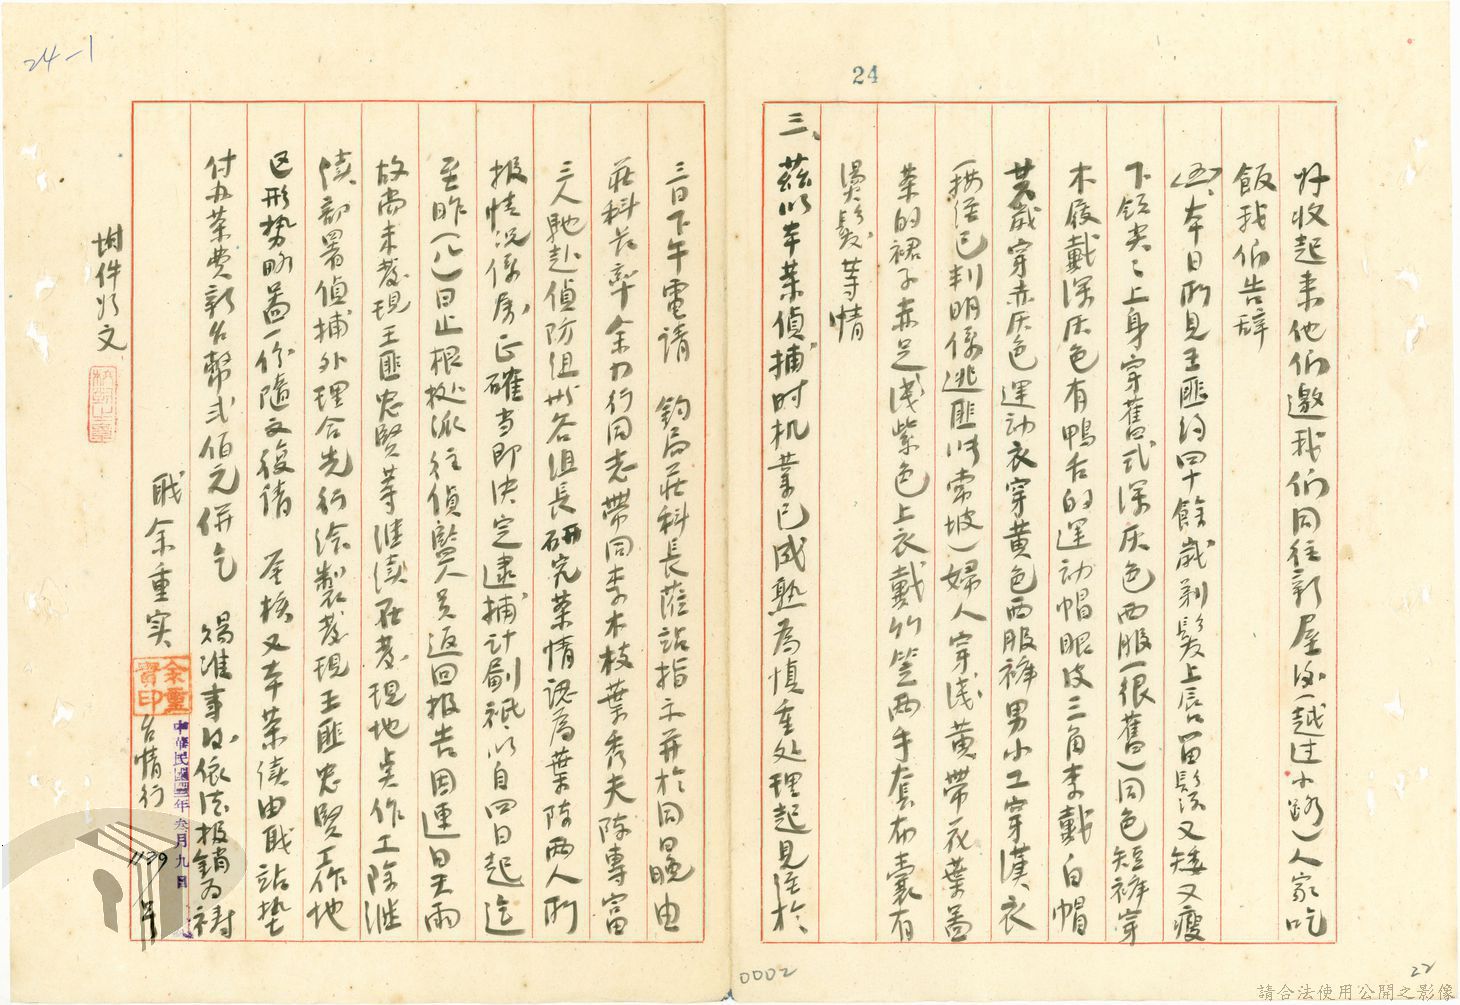 24
好收起来他們邀我們同往新屋後(越过小路)人家吃
飯我們告辞
(五)、本日所見王匪約四十餘歲剃髮上唇留鬍又矮又瘦
下頷尖々上身穿舊式深灰色西服(很舊)同色短褲穿
木屐戴深灰色有鴨舌的運动帽眼皮三角李戴白帽
歲穿赤灰色運动衣穿黄色西服褲男小工穿漢衣
一按經已判明係逃匪 常坡)婦人穿浅黄帶花葉蓋
菜的裙子赤足浅紫色上衣戴竹笠两手套布囊有
燙髮等情
三、茲以本案偵捕时机業已成熟為慎重处理起見經於
三日下午電請 鈞局莊科長蒞站指示并於同日晚由
莊科長率余力行同志帶同李木枝葉秀夫陈專富
三人馳赴偵防组 各组長研究案情認為葉陈两人所
报情况係属正確当即决定逮捕計劃祇以自四日起迄
至昨(八)日止根据派往偵監人員返回报告因連日天雨
故尚未發現王匪忠賢等继续在發現地点作工除继
续部署偵捕外理合先行绘製發現王匪忠賢工作地
区形势略圖一份随文復請 鉴核又本案续由职站垫
付五菜費新台幣弍佰元併乞 賜准事後依法报銷為禱
附件如文
职余重实
余重實印
台情行 1139号
中華民國四三年叁月九日
24-1
0002
22
請合法使用公開之影像